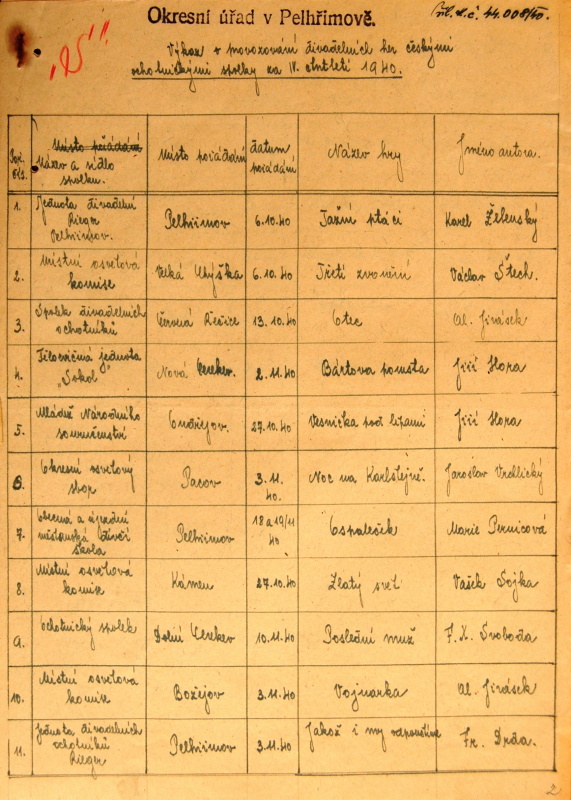 Okresní úřad v Pelhřimově.
čís. 44.008/40.
"25"
Výkaz o provozování divadelních her českými
ochotnickými spolky za IV. čtvrtletí 1940.
Poř. čís.
Místo pořádání
Název a sídlo
spolku.
Místo pořádání
datum
pořádání
Název hry
Jméno autora.
1.
Jednota divadelní
Rieger
Pelhřimov.
Pelhřimov
6.10.40
Tažní ptáci
Karel Želenský
2.
Místní osvětová
komise
Velká Chýška
6.10.40
Třetí zvonění
Václav Štech.
3.
Spolek divadelních
ochotníků
Červená Řečice
13.10.40
Otec
Al. Jirásek
4.
Tělocvičná jednota
"Sokol"
Nová Cerekev.
2.11.40
Bártova pomsta
Jiří Hora
5.
Mládež Národního
souručenství
Ondřejov.
27.10.40
Vesnička pod lipami
Jiří Hora
6.
Okresní osvětový
sbor
Pacov
3.11.
40.
Noc na Karlštejně.
Jaroslav Vrchlický
7.
Obecná a újezdní
měšťanská dívčí
škola
Pelhřimov
18 a 19/11
40
Ospaleček
Marie Pernicová
8.
Místní osvětová
komise
Kámen
27.10.40
Zlatý svět
Vašek Sojka
9.
Ochotnický spolek
Dolní Cerekev
10.11.40
Poslední muž
F. X. Svoboda
10.
Místní osvětová
komise
Božejov
3.11.40
Vojnarka
Al. Jirásek
11.
Jednota divadelních
ochotníků
Rieger
Pelhřimov
3.11.40
Jakož i my odpouštíme
Fr. Drda.
2